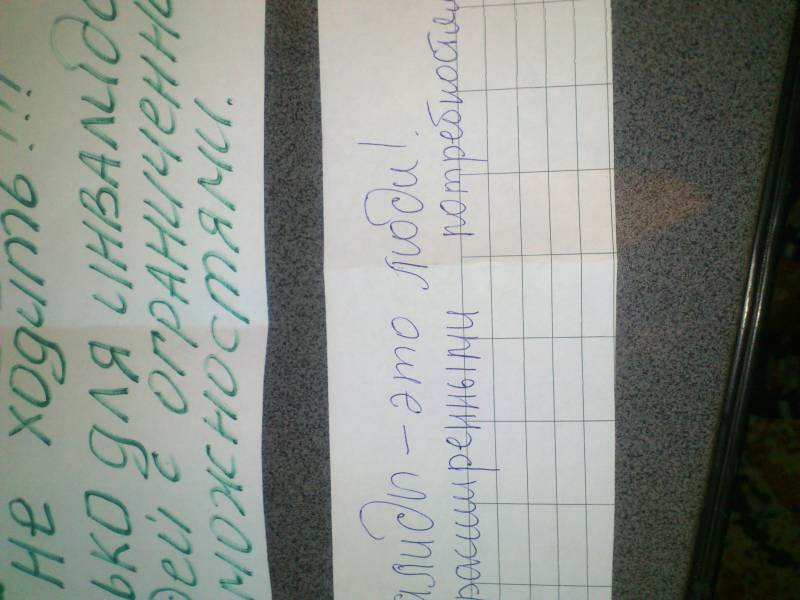 НЕ ХОДИТЬ!!!
ЬКО ДЛЯ ИНВАЛИДО
ДЕЙ С ОГРАНИЧЕНН
МОЖНОСТЯМИ.
алиды – это люди!
расширенными потребностям